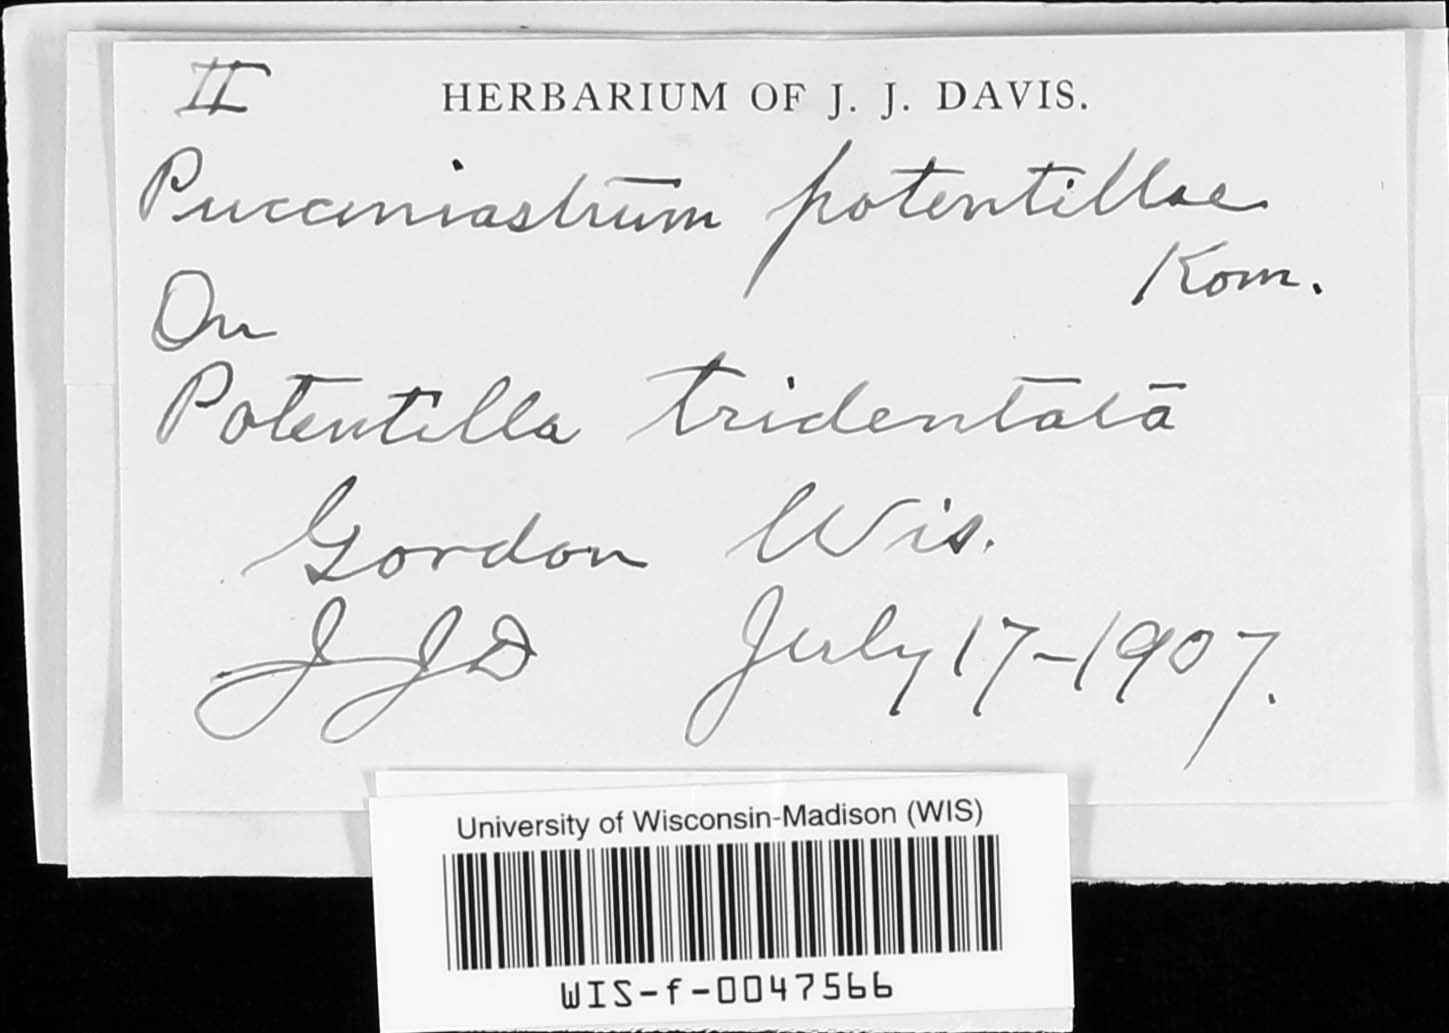 II HERBARIUM OF J. J. DAVIS.
Pucciniastrum potentillae
Kom.
On
Potentilla tridentata
Gordon Wis.
JJD July 17-1907.
University of Wisconsin-Madison (WIS)
WIS-f-0047566